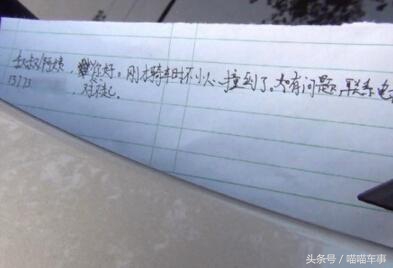 叔叔/阿姨，你好。刚才骑车时不小心撞到了。如有问题，联系电
13123
对不起。
头条号/喵喵车事